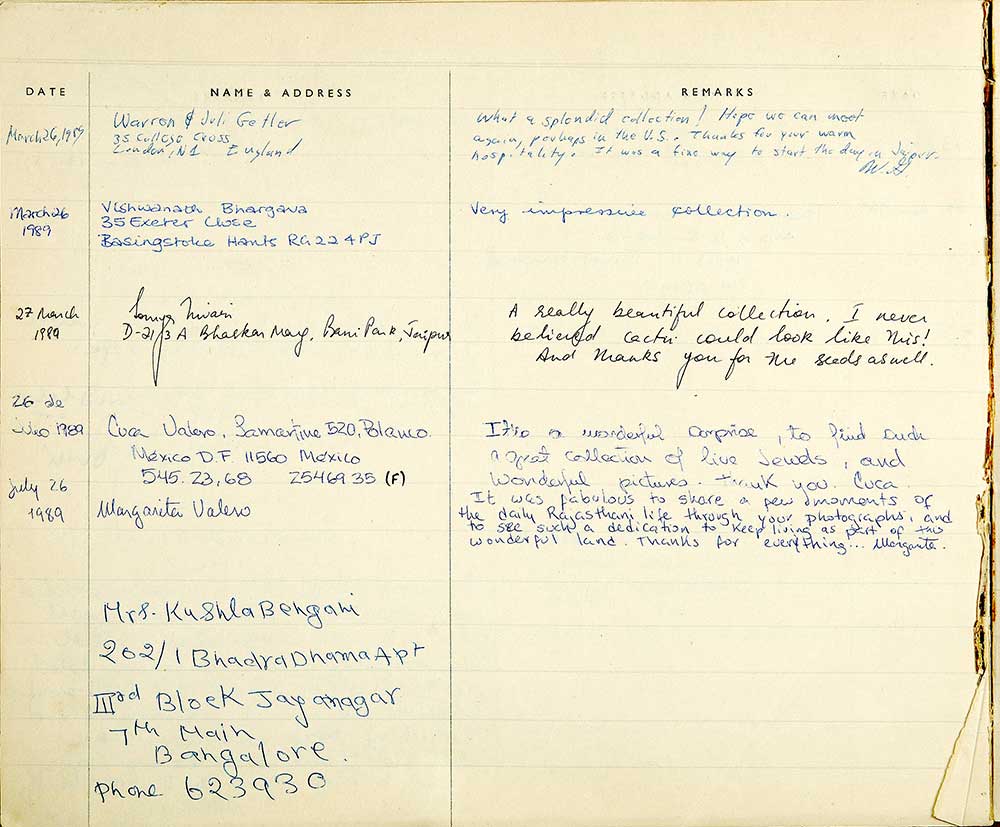 DATE
NAME & ADDRESS
REMARKS
March 26, 1989
Warren & Juli Getler
35 College Cross
London, N1 England
What a splendid collection! Hope we can meet
again, perhaps in the U.S. Thanks for your warm
hospitality. It was a fine way to start the day in Jaipur.
March 26
1989
Vishwanath Bhargava
35 Exeter Close
Basingstoke Hants RG22 4PJ
Very impressive collection.
27 March
1989
D-21/3 A Bhaskar Marg, Bani Park, Jaipur
A really beautiful collection. I never
believed cacti could look like this!
And thanks you for the seeds as well.
26 de
1989
Cuca Valero, Lamartine 520, Polanco.
México D.F. 11560 México
545.23,68 2546935 (F)
It is a wonderful surprise, to find such
a great collection of live Jewels, and
wonderful pictures. thank you. Cuca.
July 26
1989
Margarita Valero
It was fabulous to share a few moments of
the daily Rajasthani life through your photographs, and
to see such a dedication to keep living as part of this
wonderful land. Thanks for everything... Margarita.
Mrs. Kushla Bengani
202/1 Bhadra Dhama Apt
IIIrd Block Jayanagar
7th Main
Bangalore.
phone 623930